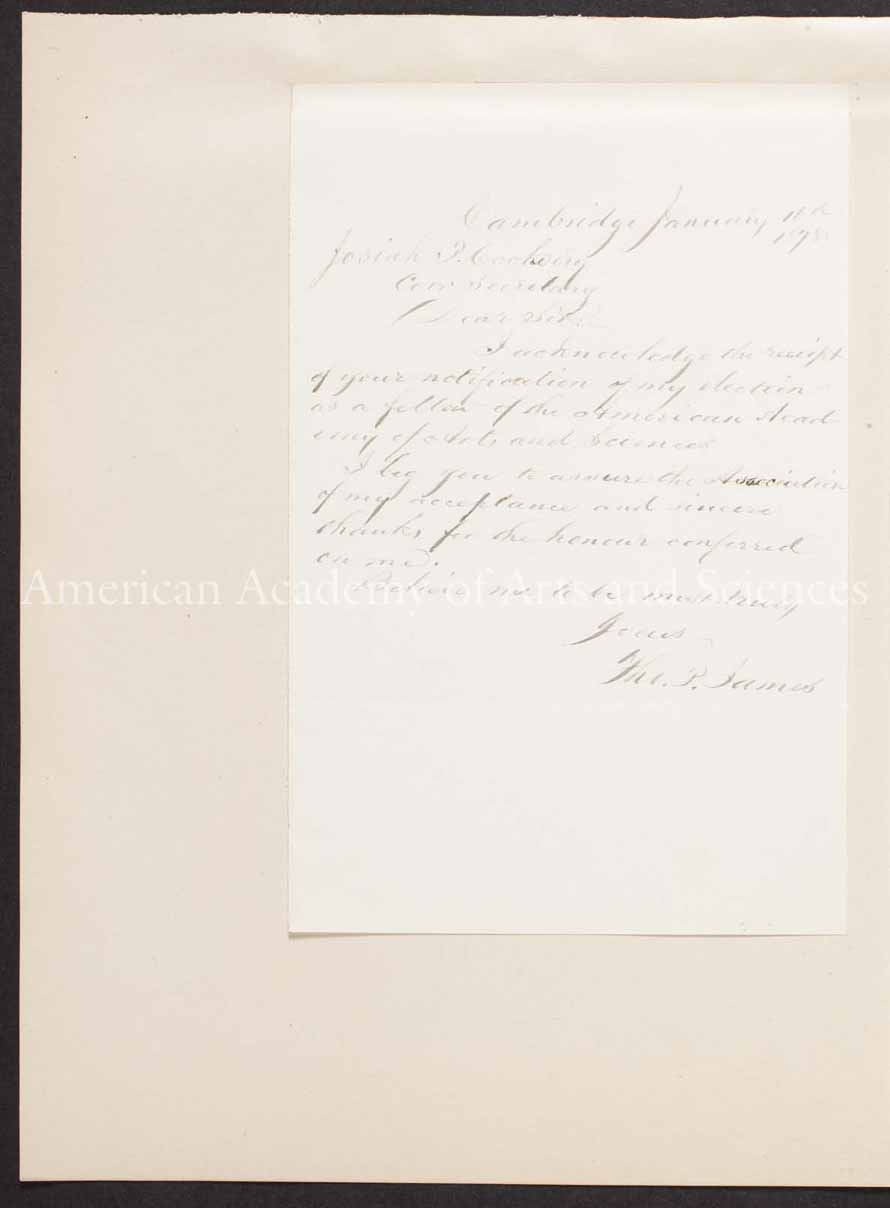 Cambridge January
Josiah P. Cooke
Cor. Secretary
Dear Sir:
I acknowledge the receipt
of your notification of my election
as a fellow of the American Acad
emy of Arts and Sciences
I beg you to assure the Association
of my acceptance and sincere
thanks for the honour conferred
on me.
American Academy of Arts and Sciences
Believe me to be most truly
Yours
Tho. P. James